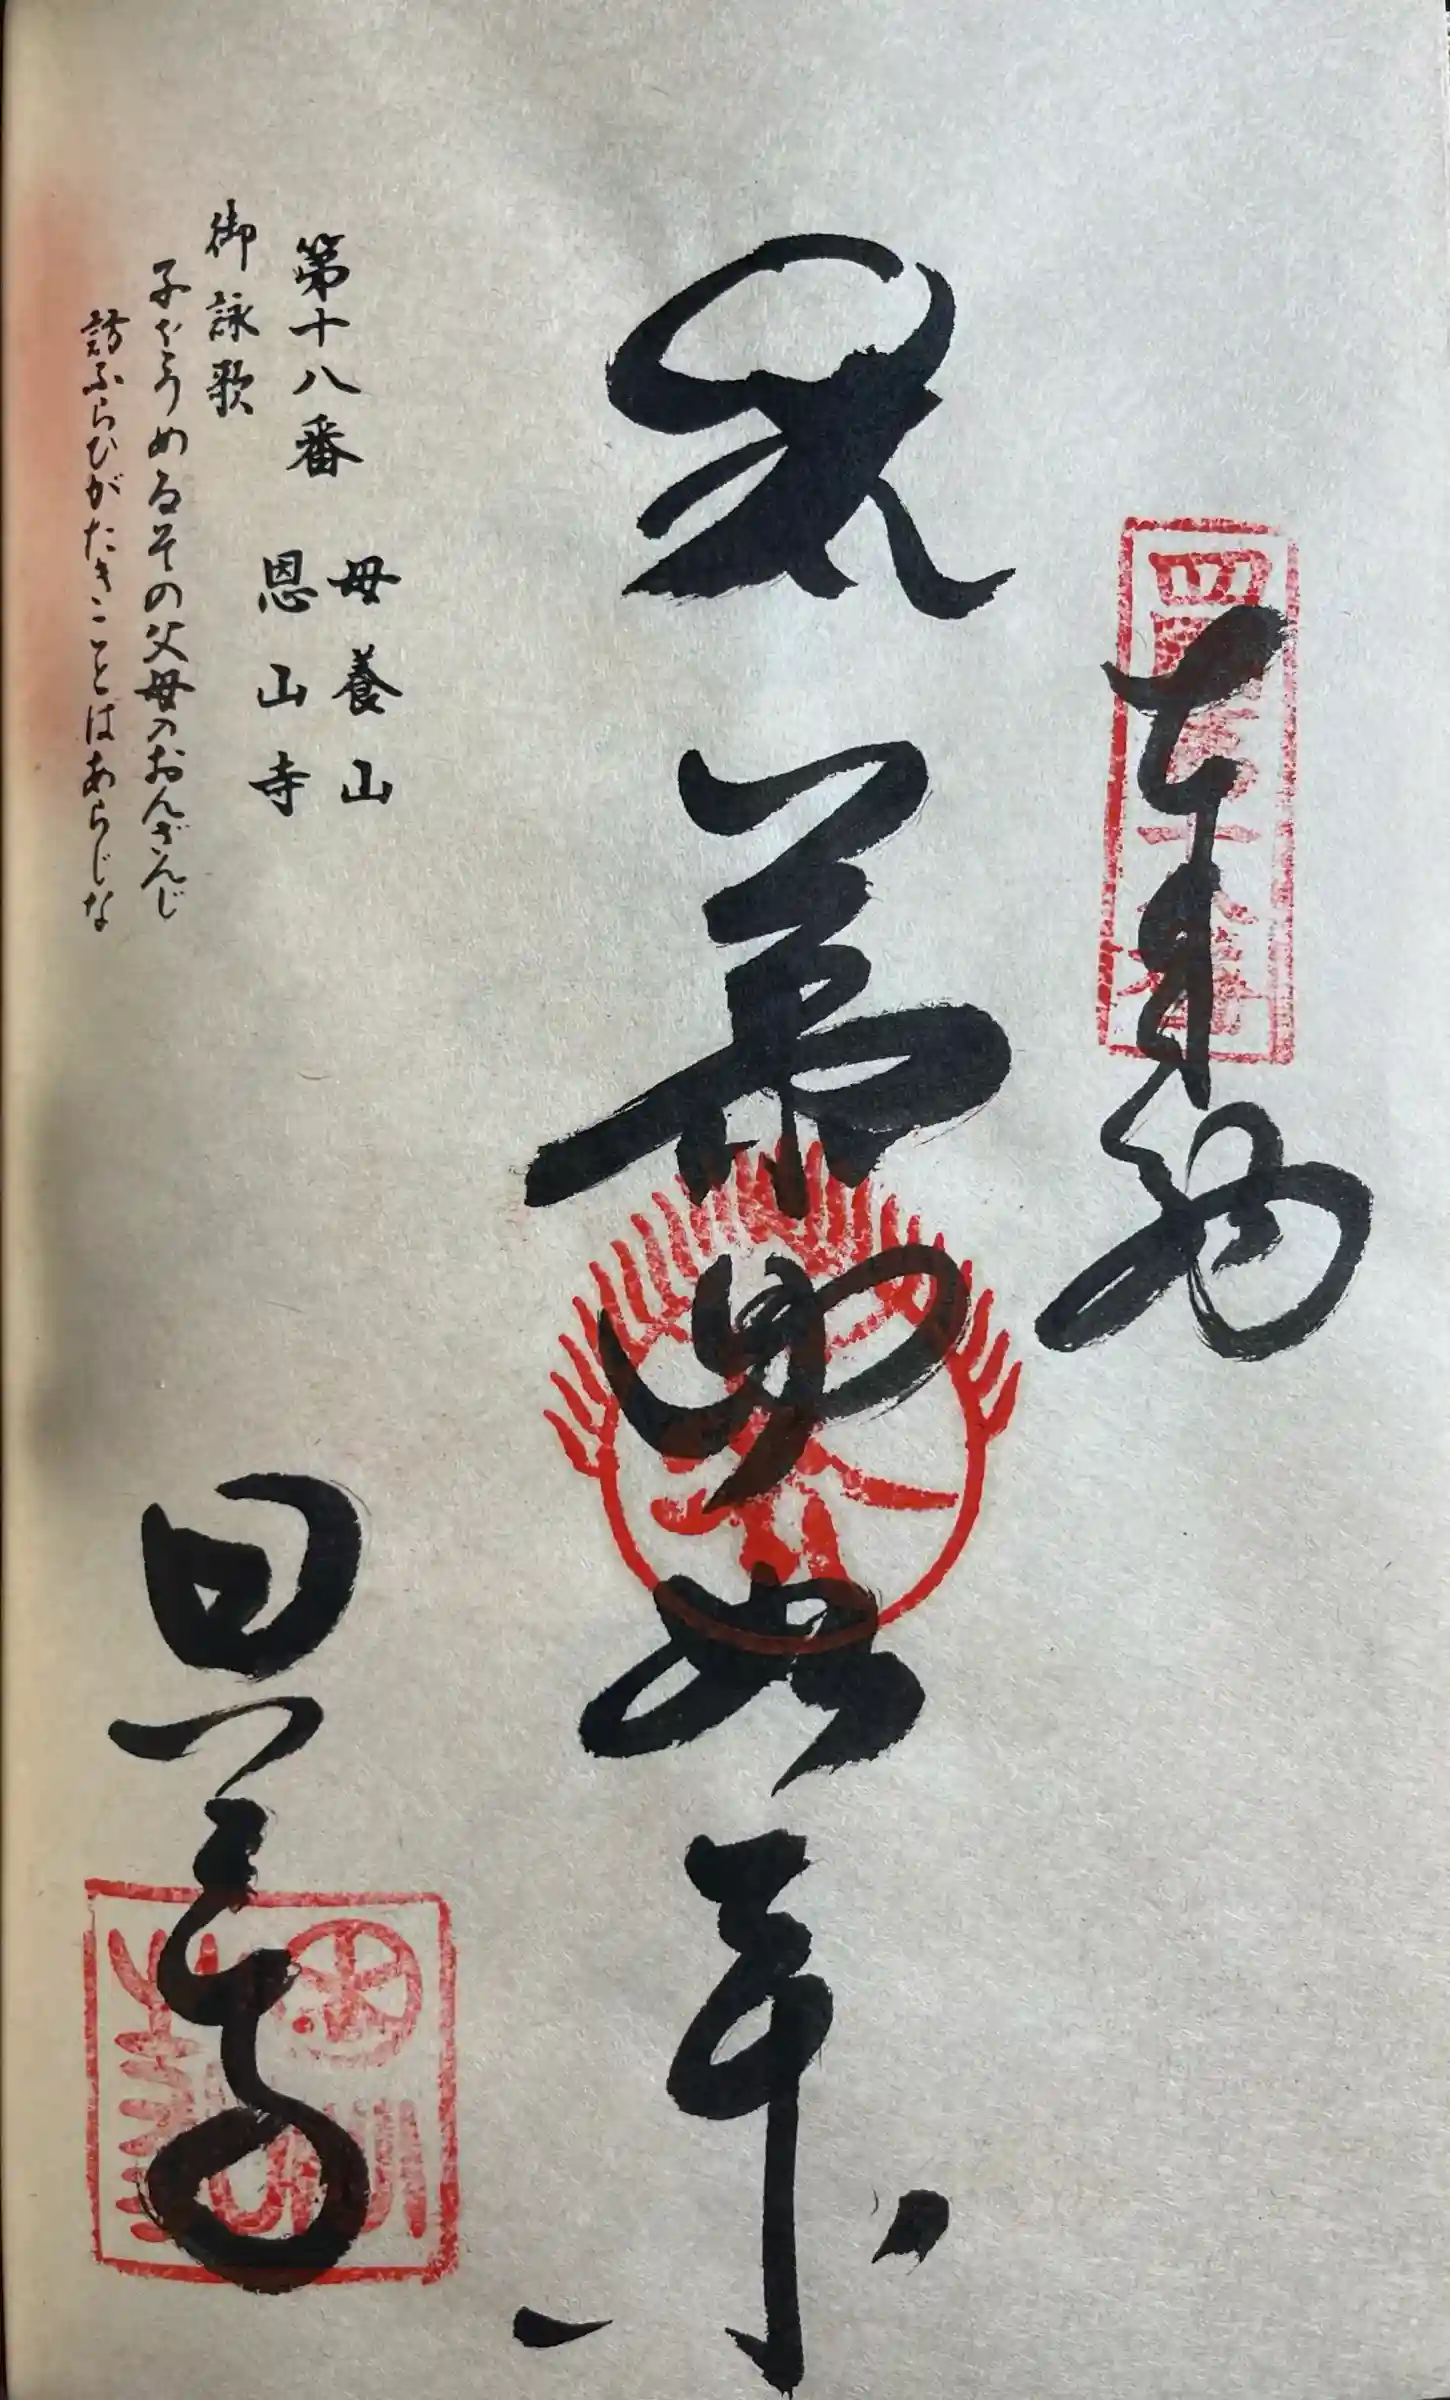 奉納
薬師如来
恩山寺
第十八番 母養山
恩山寺
御詠歌
子をうめるその父母のおんざんじ
訪ふらひがたきことはあらじな